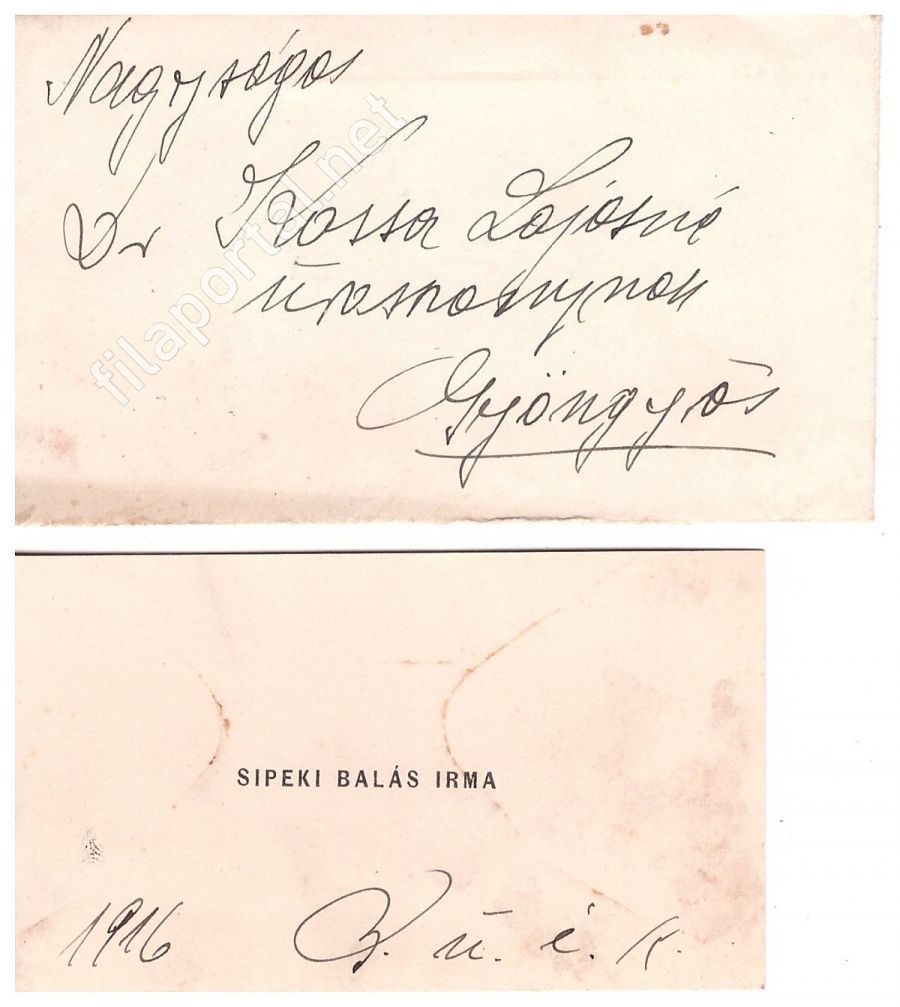 Nagyságos
Dr Kossa Lajosné
úrasszonynak
Gyöngyös
filaportal.net
SIPEKI BALÁS IRMA
1916 B. ú. é. k.